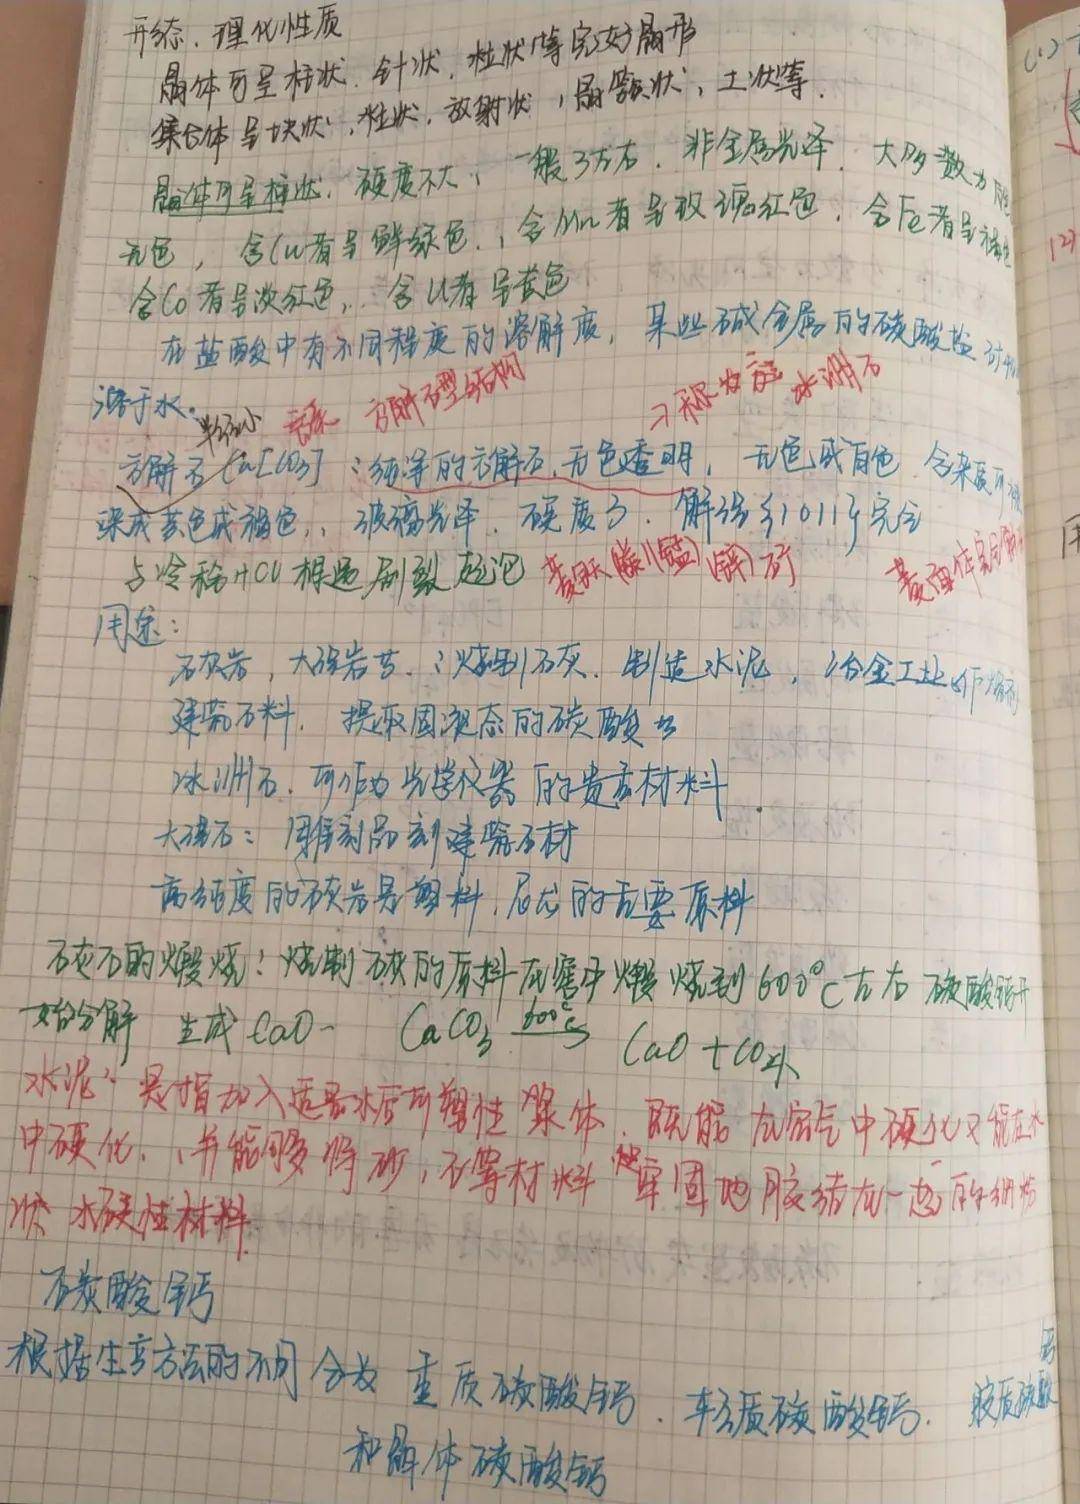 形态、理化性质
晶体可呈柱状、针状、粒状等完好晶形
集合体呈块状、粒状、放射状、晶簇状、土状等.
晶体可呈柱状、硬度不大,一般3左右、非金属光泽、大多数为
无色,含Cu者呈鲜绿色、含Mn者呈玫瑰红色、含Fe者呈褐色
含Co者呈淡红色、含U者呈黄色
在盐酸中有不同程度的溶解度,某些碱金属的碳酸盐
溶于水.
半径小 方解石型结构 又称 冰洲石
方解石 Ca[CO3]:纯净的方解石,无色透明,无色或白色 含杂质可
染成黄色或褐色、玻璃光泽、硬度3、解理{1011}完全
与冷稀HCl相遇剧烈起泡 菱铁(镁)(锰)(锌)矿 菱面体完全解
用途:
石灰岩,大理岩等:烧制石灰、制造水泥,冶金工业作熔剂
建筑石料、提取固液态的碳酸
冰洲石、可作为光学仪器的贵重材料
大理石:用雕刻品刻建筑石材
高纯度的石灰岩是塑料,尼龙的重要原料
石灰石的煅烧:烧制石灰的原料在窑中煅烧到600℃左右 碳酸钙开
始分解 生成CaO CaCO3 600℃ CaO+CO2↑
水泥:是指加入适量水后可塑性浆体、既能在空气中硬化又能在水
中硬化、并能够将砂,石等材料牢固地胶结在一起的细粉
状水硬性材料
碳酸钙
根据生产方法的不同 分为 重质碳酸钙、轻质碳酸钙、胶质碳酸钙
和晶体碳酸钙